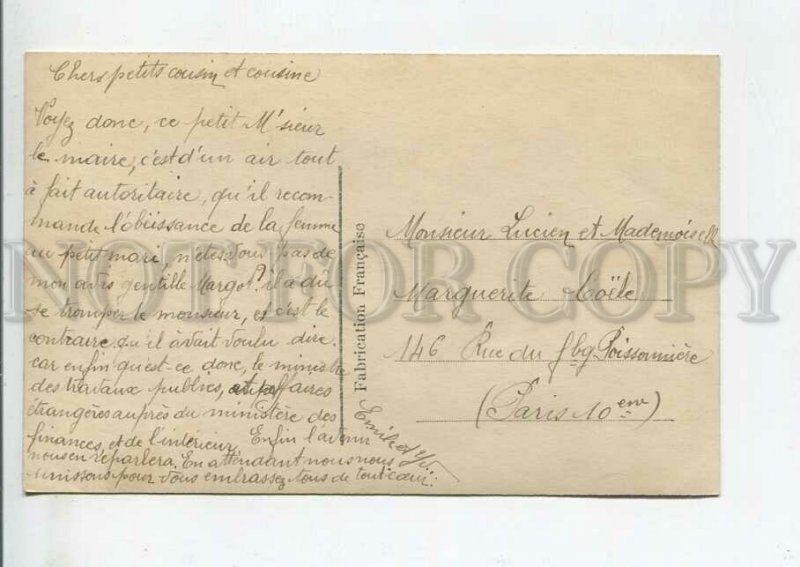 Chers petits cousin et cousine
Voyez donc, ce petit M'sieur
le maire, c'est d'un air tout
à fait autoritaire, qu'il recom-
mande l'obéissance de la femme
au petit mari, n'êtes vous pas de
mon avis gentille Margot? il a dû
se tromper le monsieur, et c'est le
contraire qu'il avait voulu dire.
car enfin qu'est-ce donc, le ministre
des travaux publics, affaires
étrangères auprès du ministère des
finances, et de l'intérieur. Enfin l'avenir
nous en reparlera. En attendant nous nous
unissons pour vous embrassez tous de tout cœur.
Emile et
Fabrication Française
Monsieur Lucien et Mademoiselle
Marguerite
146 Rue du fbg Poissonnière
(Paris 10eme)
NOT FOR COPY